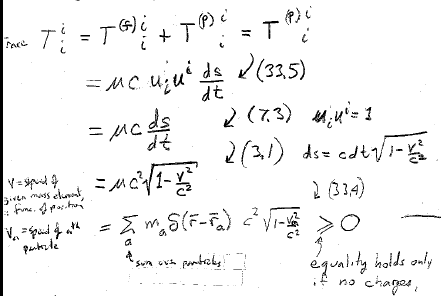 Trace T^i_i = T^(f)i_i + T^(p)i_i = T^(p)i_i
= μc u_i u^i ds/dt ↙ (33.5)
= μc ds/dt ↙ (7.3) u_i u^i = 1
↙ (3,1) ds = c dt √(1 - v²/c²)
V = speed of given mass element = func. of position
= μc² √(1 - v²/c²) ↓ (33.4)
V_a = speed of ath particle
= Σ_a m_a δ(r̄ - r̄_a) c² √(1 - v_a²/c²) ≥ 0
sum over particles
equality holds only
if no charges,